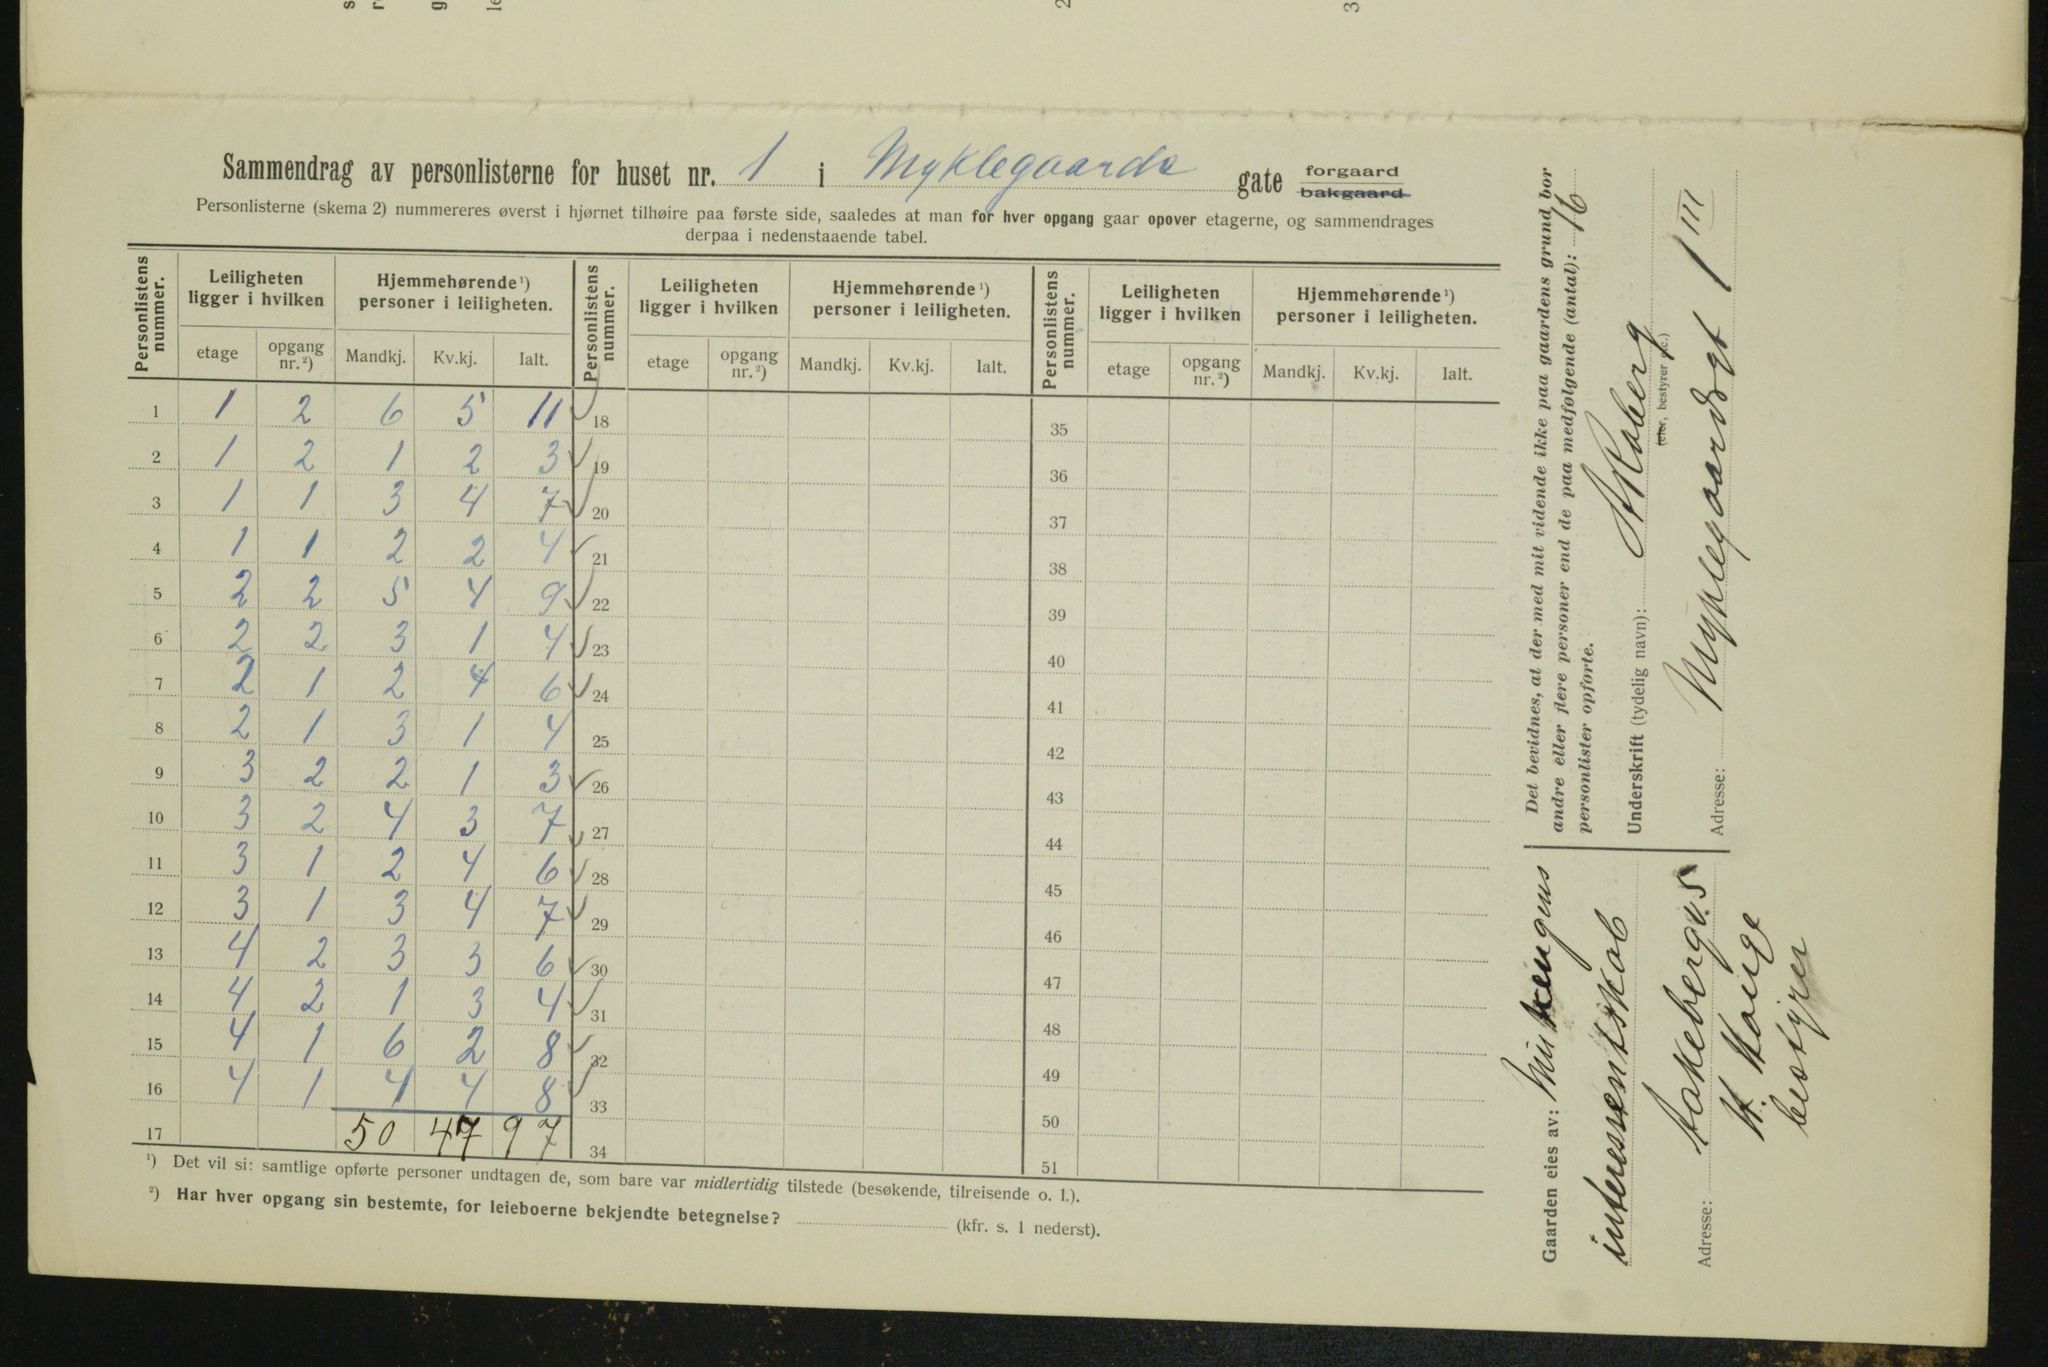 Sammendrag av personlisterne for huset nr. 1 i Myklegaards gate forgaard bakgaard
Personlisterne (skema 2) nummereres øverst i hjørnet tilhøire paa første side, saaledes at man for hver opgang gaar opover etagerne, og sammendrages
derpaa i nedenstaaende tabel.
Personlistens nummer. Leiligheten ligger i hvilken Hjemmehørende¹) personer i leiligheten. Personlistens nummer. Leiligheten ligger i hvilken Hjemmehørende¹) personer i leiligheten. Personlistens nummer. Leiligheten ligger i hvilken Hjemmehørende¹) personer i leiligheten.
etage opgang nr.²) Mandkj. Kv.kj. Ialt. etage opgang nr.²) Mandkj. Kv.kj. Ialt. etage opgang nr.²) Mandkj. Kv.kj. Ialt.
1 1 2 6 5 11 18 35
2 1 2 1 2 3 19 36
3 1 1 3 4 7 20 37
4 1 1 2 2 4 21 38
5 2 2 5 4 9 22 39
6 2 2 3 1 4 23 40
7 2 1 2 4 6 24 41
8 2 1 3 1 4 25 42
9 3 2 2 1 3 26 43
10 3 2 4 3 7 27 44
11 3 1 2 4 6 28 45
12 3 1 3 4 7 29 46
13 4 2 3 3 6 30 47
14 4 2 1 3 4 31 48
15 4 1 6 2 8 32 49
16 4 1 4 4 8 33 50
17 50 47 97 34 51
¹) Det vil si: samtlige opførte personer undtagen de, som bare var midlertidig tilstede (besøkende, tilreisende o. l.).
²) Har hver opgang sin bestemte, for leieboerne bekjendte betegnelse? (kfr. s. 1 nederst).
Det bevidnes, at der med mit vidende ikke paa gaardens grund bor
andre eller flere personer end de paa medfølgende (antal): 16
personlister opførte.
Underskrift (tydelig navn):
(eier, bestyrer etc.)
Adresse: Myklegaardsgt 1 III
Gaarden eies av:
interessentskab
Adresse: Aakebergv. 5
H. Hauge
bestyrer